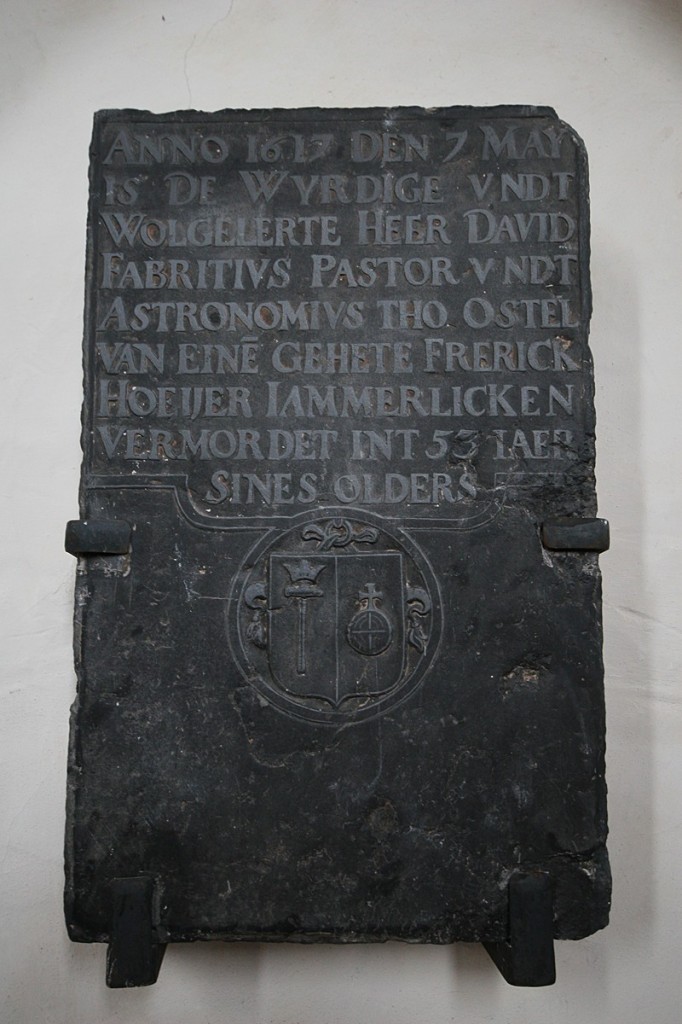 ANNO 1617 DEN 7 MAY
IS DE WYRDIGE VNDT
WOLGELERTE HEER DAVID
FABRITIVS PASTOR VNDT
ASTRONOMIVS THO OSTEL
VAN EINĒ GEHETE FRERICK
HOEIJER IAMMERLICKEN
VERMORDET INT 53 IAER
SINES OLDERS